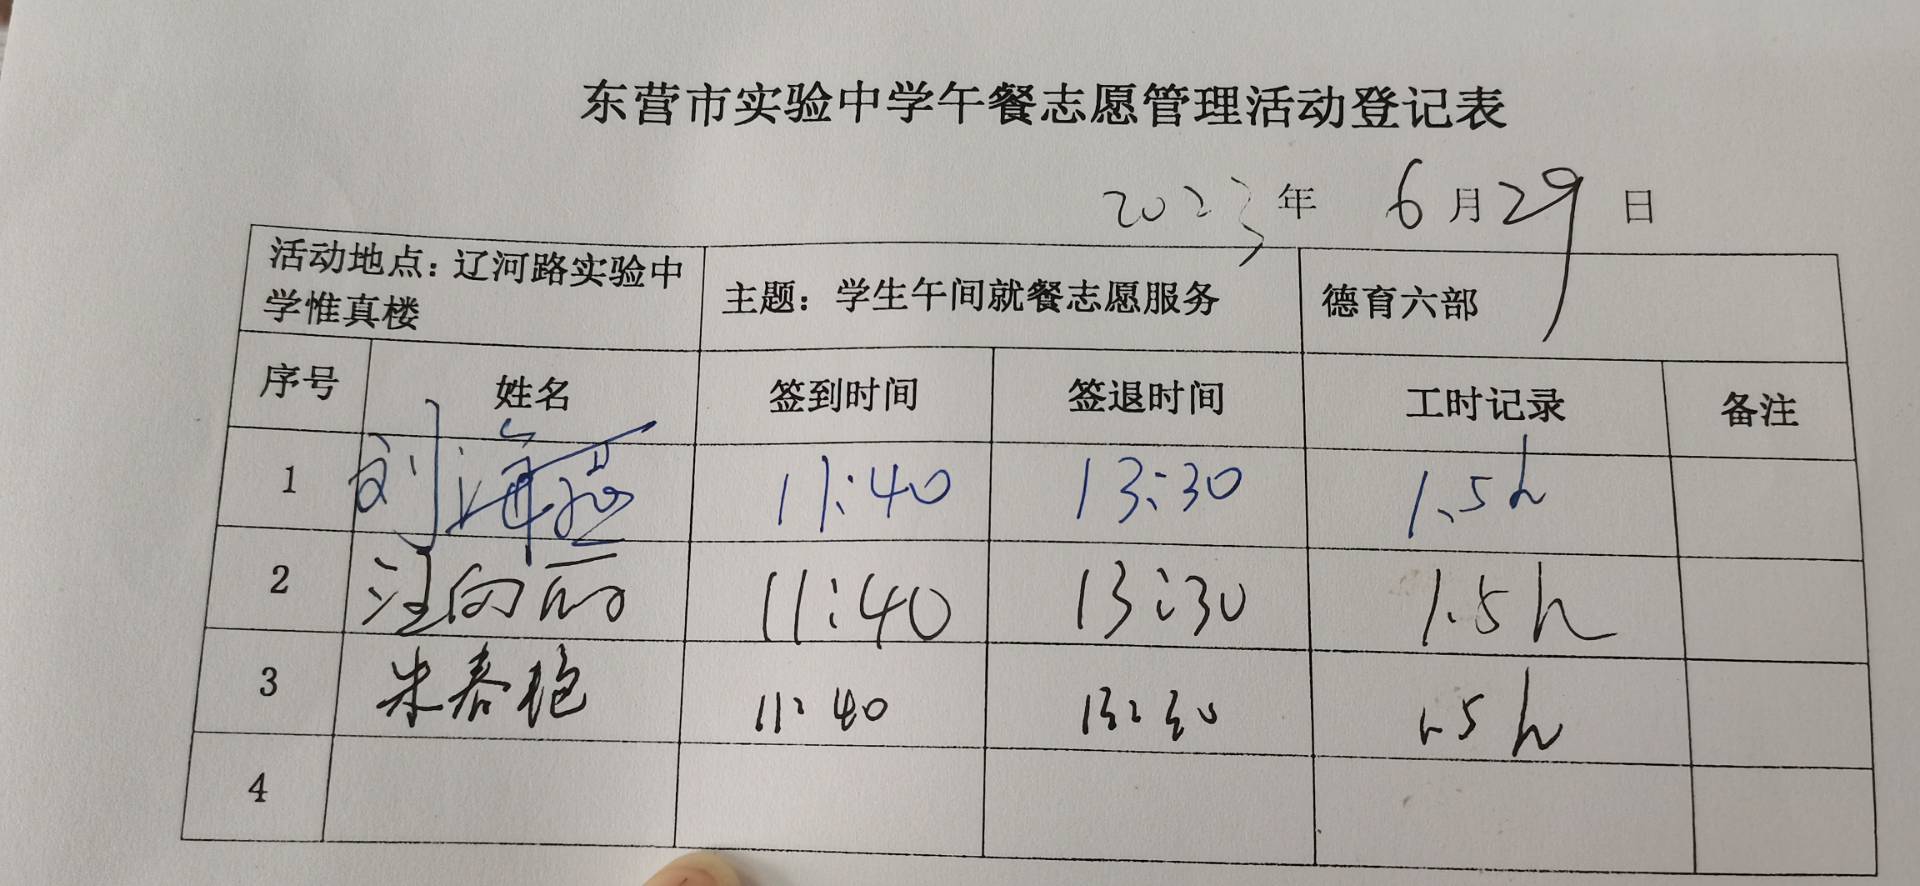 东营市实验中学午餐志愿管理活动登记表
2023年 6月29日
活动地点：辽河路实验中学惟真楼 主题：学生午间就餐志愿服务 德育六部
序号 姓名 签到时间 签退时间 工时记录 备注
1 刘海燕 11:40 13:30 1.5h
2 汪向丽 11:40 13:30 1.5h
3 朱春艳 11:40 13:30 1.5h
4